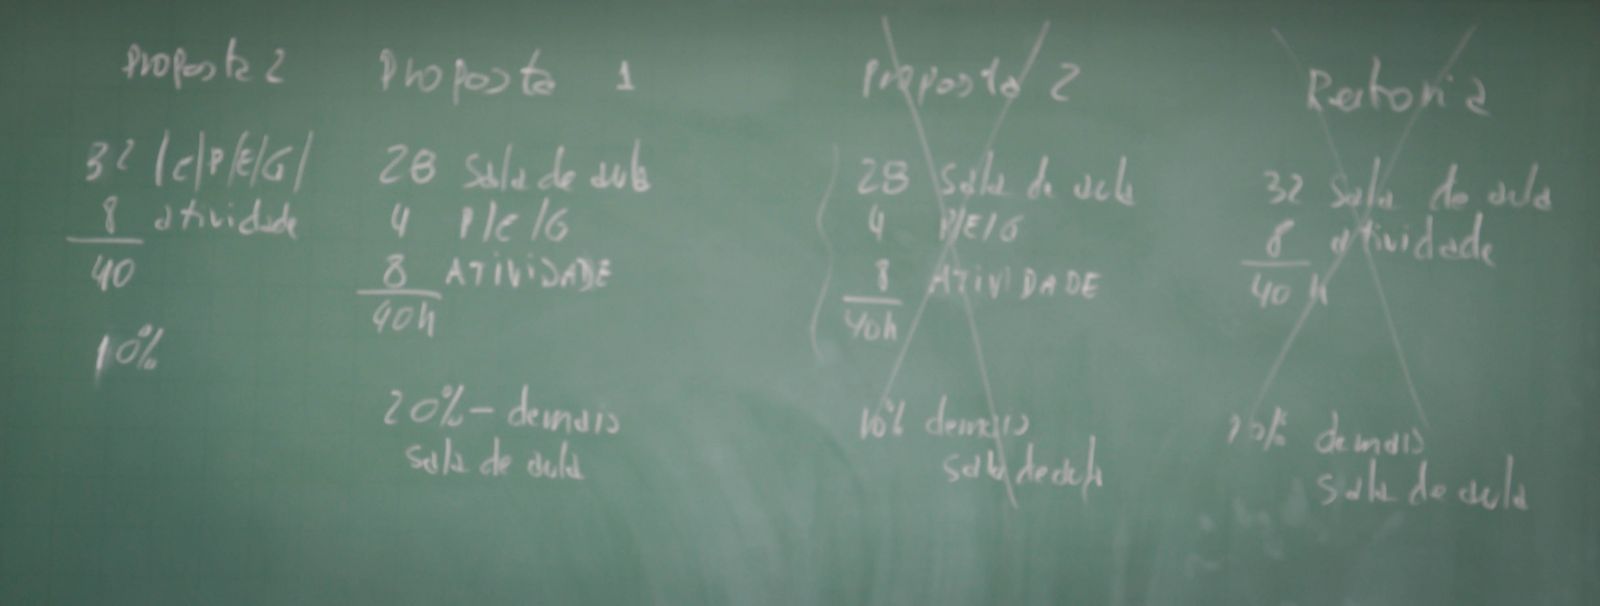 Proposta 2
32 |C|P|E|G|
8 atividade
40
10%
Proposta 1
28 Sala de aula
4 P/E/G
8 ATIVIDADE
40h
20% - demais
sala de aula
Proposta 2
28 Sala de aula
4 P/E/G
8 ATIVIDADE
40h
10% demais
sala de aula
Reitoria
32 Sala de aula
8 atividade
40 h
demais
sala de aula